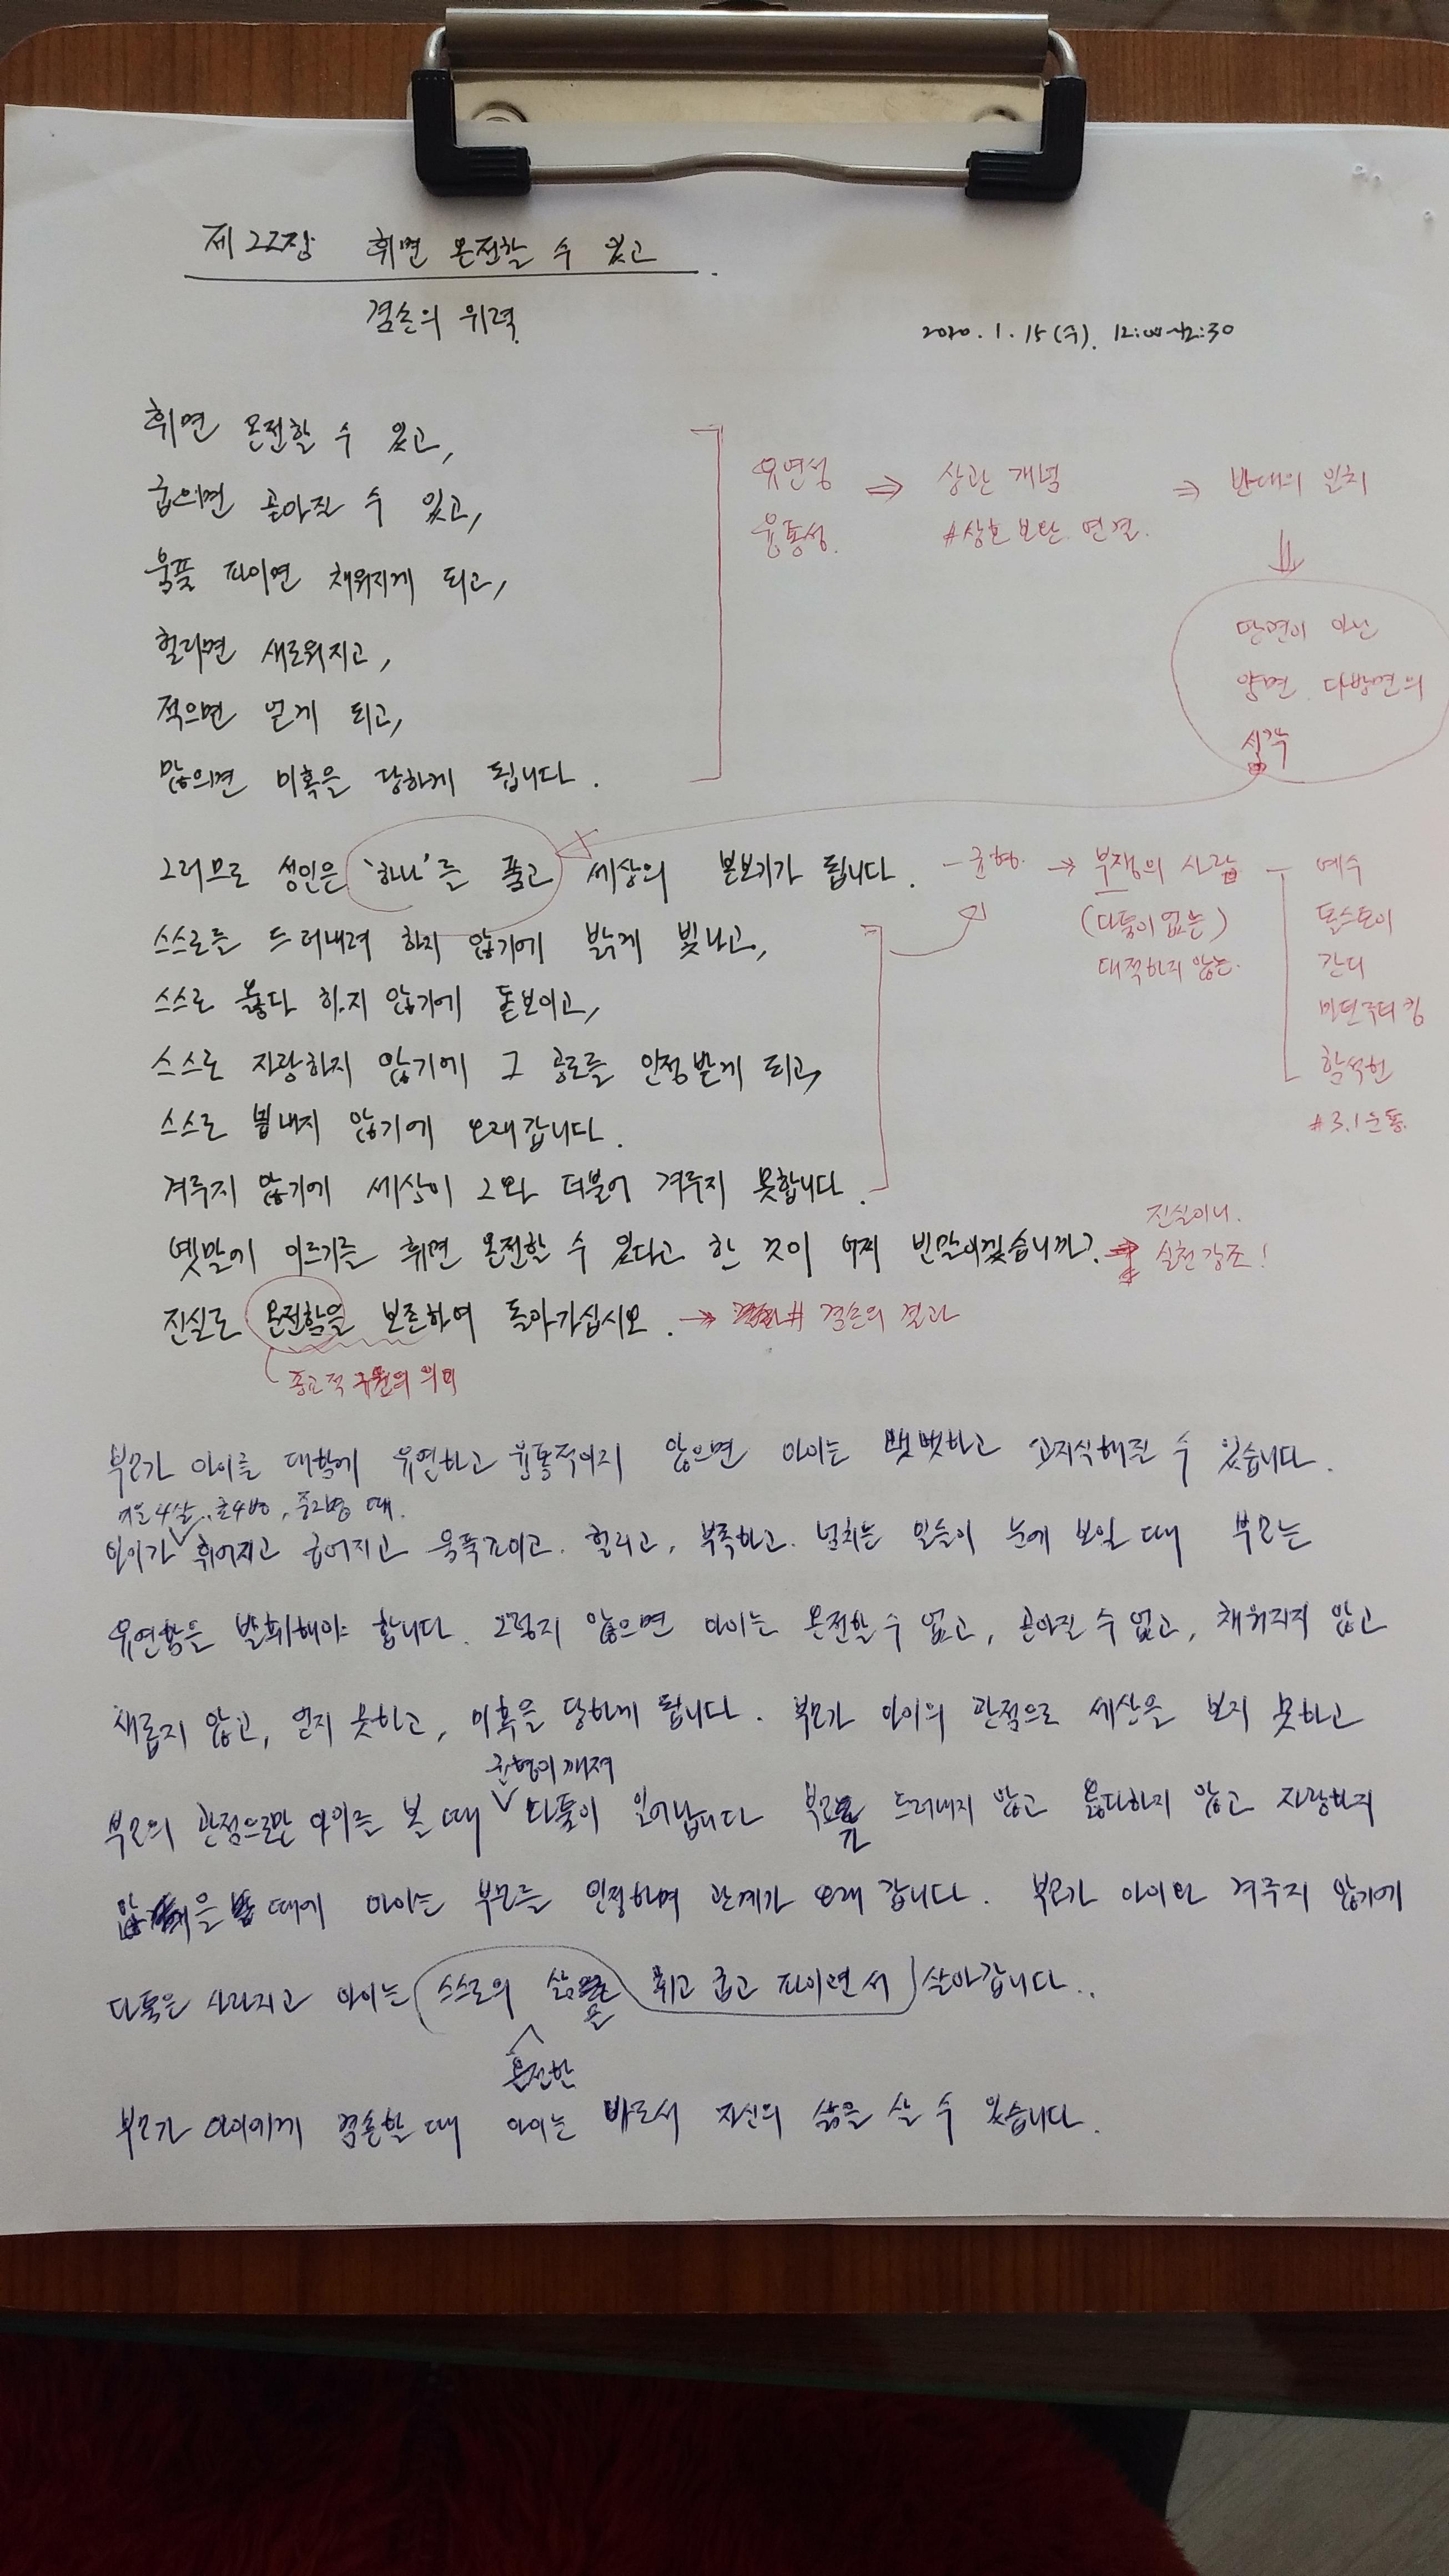 제22장 휘면 온전할 수 있고
겸손의 위력
2020. 1. 15(수). 12:00~12:30
휘면 온전할 수 있고,
굽으면 곧아질 수 있고,
움푹 파이면 채워지게 되고,
헐리면 새로워지고,
적으면 얻게 되고,
많으면 미혹을 당하게 됩니다.
유연성 ⇒ 상관 개념 ⇒ 반대의 일치
융통성. #상호 보완. 연결.
단면이 아닌
양면. 다방면의
시각
그러므로 성인은 '하나'를 품고 세상의 본보기가 됩니다.
스스로를 드러내려 하지 않기에 밝게 빛나고,
스스로 옳다 하지 않기에 돋보이고,
스스로 자랑하지 않기에 그 공로를 인정받게 되고,
스스로 뽐내지 않기에 오래갑니다.
겨루지 않기에 세상이 그와 더불어 겨루지 못합니다.
- 균형. → 부쟁의 사람 - 예수
(다툼이 없는) 톨스토이
대적하지 않는. 간디
마틴루터킹
함석헌
#3.1운동.
옛말에 이르기를 휘면 온전할 수 있다고 한 것이 어찌 빈말이겠습니까?
진실이니.
실천 강조!
진실로 온전함을 보존하여 돌아가십시오. → # 겸손의 결과
종교적 구원의 의미
부모가 아이를 대할 때 유연하고 융통적이지 않으면 아이는 뻣뻣하고 고지식해질 수 있습니다.
미운4살, 초4병, 중2병 때.
아이가 휘어지고 굽어지고 움푹 파이고. 헐리고, 부족하고. 넘치는 일들이 눈에 보일 때 부모는
유연함을 발휘해야 합니다. 그렇지 않으면 아이는 온전할 수 없고, 곧아질 수 없고, 채워지지 않고
새롭지 않고, 얻지 못하고, 미혹을 당하게 됩니다. 부모가 아이의 관점으로 세상을 보지 못하고
균형이 깨져
부모의 관점으로만 아이를 볼 때 다툼이 일어납니다 부모가 드러내지 않고 옳다하지 않고 자랑하지
않을 때에 아이는 부모를 인정하며 관계가 오래 갑니다. 부모가 아이와 겨루지 않기에
다툼은 사라지고 아이는 스스로의 삶을 휘고 굽고 파이면서 살아갑니다.
온전한
부모가 아이에게 겸손할 때 아이는 바로서 자신의 삶을 살 수 있습니다.